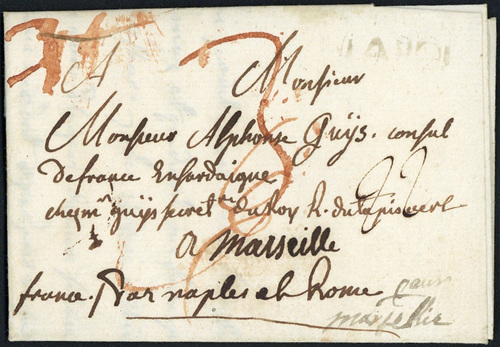 A Monsieur
Monsieur Alphonse Guÿs. consul
De france En Sardaigne
chez mr guÿs secret.re du Roy R. du tapis vert
22
a Marseille
france. par naples et Rome
marseille